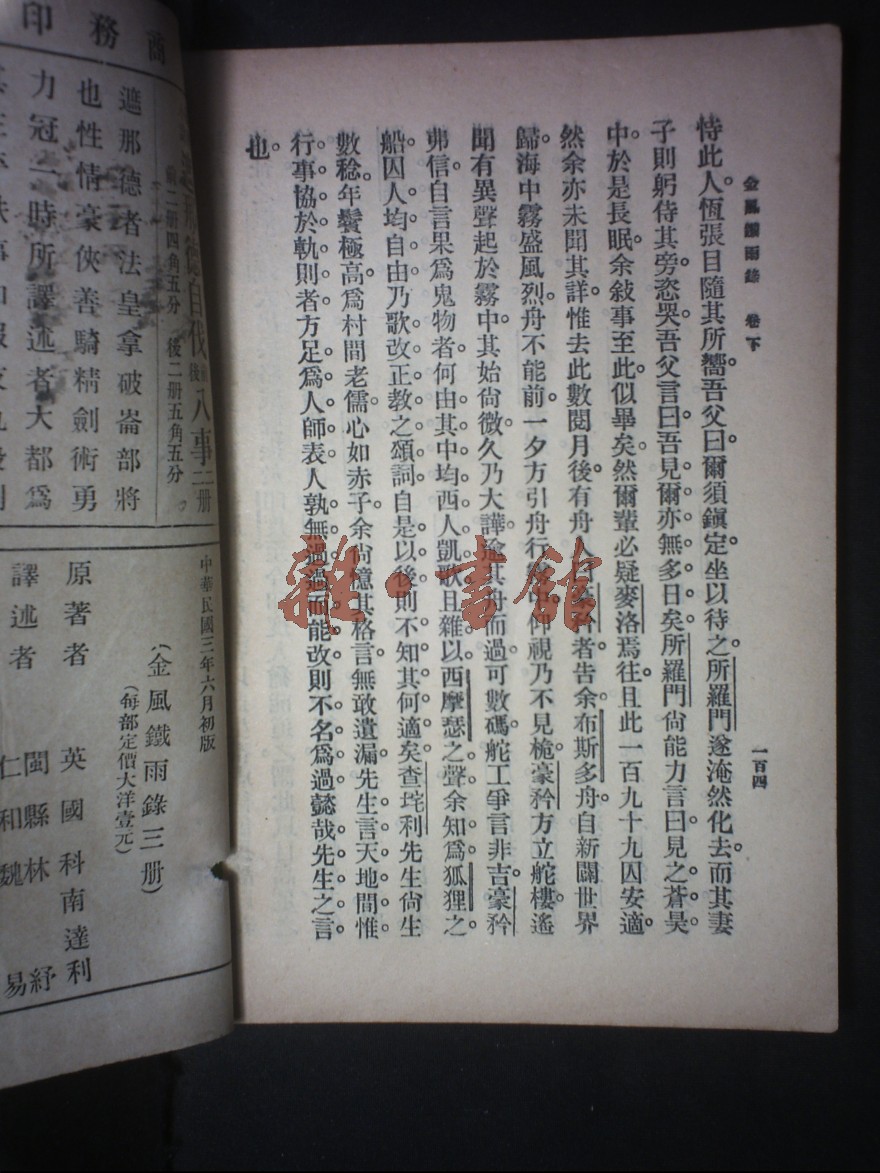 金風鐵雨錄　卷下
一百四
恃此人。恆張目隨其所嚮。吾父曰。爾須鎮定。坐以待之。所羅門遂淹然化去。而其妻
子則躬侍其旁。恣哭。吾父言曰。吾見爾亦無多日矣。所羅門尙能力言曰。見之蒼昊
中。於是長眠。余敍事至此。似畢矣。然爾輩必疑麥洛焉往。且此一百九十九囚安適。
然余亦未聞其詳。惟去此數閱月後。有舟人
者。告余布斯多舟。自新闢世界
歸。海中霧盛風烈。舟不能前。一夕方引舟行
仰視乃不見桅。豪矜方立舵樓。遙
聞有異聲起於霧中。其始尙微。久乃大譁。
其舟而過。可數碼。舵工爭言非吉。豪矜
弗信。自言果爲鬼物者。何由其中均西人凱歌。且雜以西摩瑟之聲。余知爲狐狸之
船。囚人均自由。乃歌改正教之頌詞。自是以後。則不知其何適矣。查垞利先生尙生
數稔。年鬢極高。爲村間老儒。心如赤子。余尙憶其格言。無敢遺漏。先生言天地間惟
行事協於軌則者。方足爲人師表。人孰無過。過而能改。則不名爲過。懿哉先生之言
也。
雜·書館
商務印
八事二册
前二册四角五分　後二册五角五分
遮那德者法皇拿破崙部將
也性情豪俠善騎精劍術勇
力冠一時所譯述者大都爲
中華民國三年六月初版
（金風鐵雨錄三册）
（每部定價大洋壹元）
原著者　英國科南達利
譯述者　閩縣林紓
仁和魏易